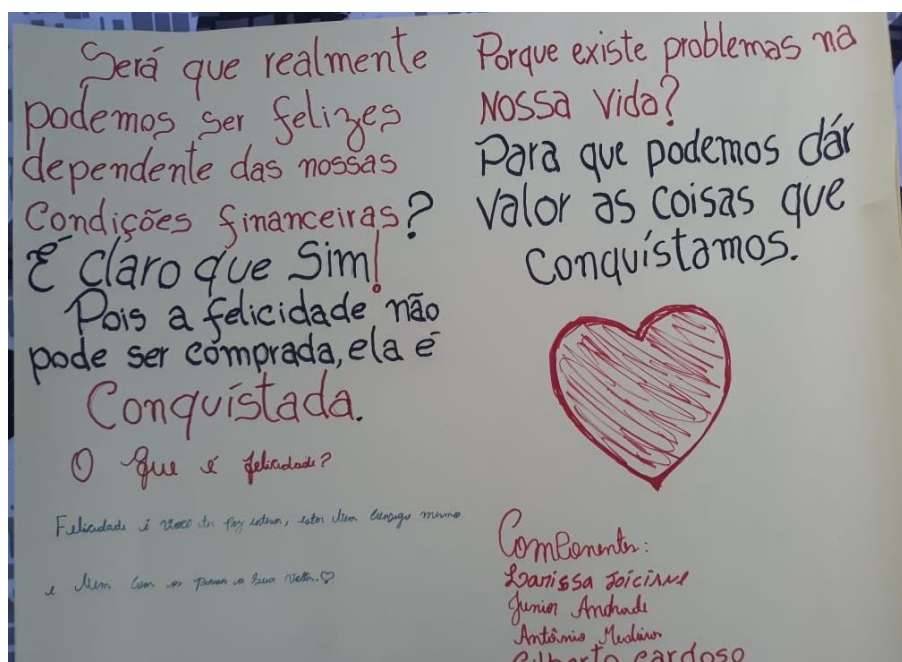 Será que realmente
podemos ser felizes
dependente das nossas
Condições financeiras?
É claro que Sim!
Pois a felicidade não
pode ser comprada, ela é
Conquístada.
O que é felicidade?
Felicidade é você ter paz interna, estar bem consigo mesmo
e bem com as a sua volta.♡
Porque existe problemas na
Nossa vida?
Para que podemos dár
valor as coisas que
Conquístamos.
Componentes:
Larissa
Junior Andrade
Antônio
Gilberto cardoso